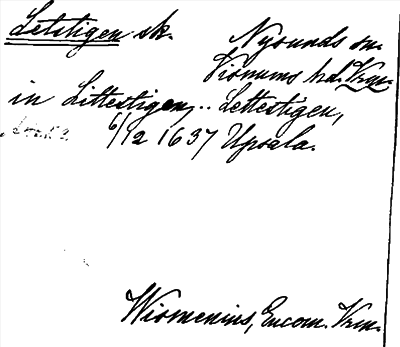 Letstigen sk. Nysunds sn.
Visnums hd. Vrm.
in Littestigen, .. Lettestigen,
6/12 1637 Upsala.
Wismenius, Encom. Vrm.